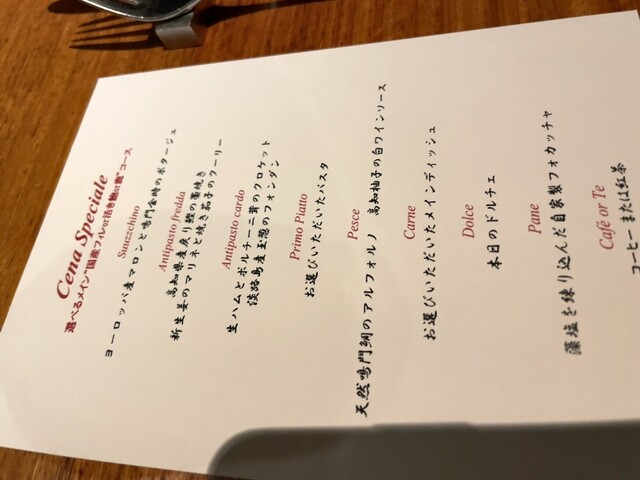 Cena Speciale
選べるメイン"国産フィレor活き鮑付
コース
Stuzzichino
ヨーロッパ産マロンと鳴門金時のポタージュ
Antipasto fredda
高知県産戻り鰹の藁焼き
新生姜のマリネと焼き茄子のクーリー
Antipasto cardo
生ハムとポルチーニ茸のクロケット
淡路島産玉葱のフォンダン
Primo Piatto
お選びいただいたパスタ
Pesce
天然鳴門鯛のアルフォルノ 高知柚子の白ワインソース
Carne
お選びいただいたメインディッシュ
Dolce
本日のドルチェ
Pane
藻塩を練り込んだ自家製フォカッチャ
Café or Te
コーヒー または紅茶